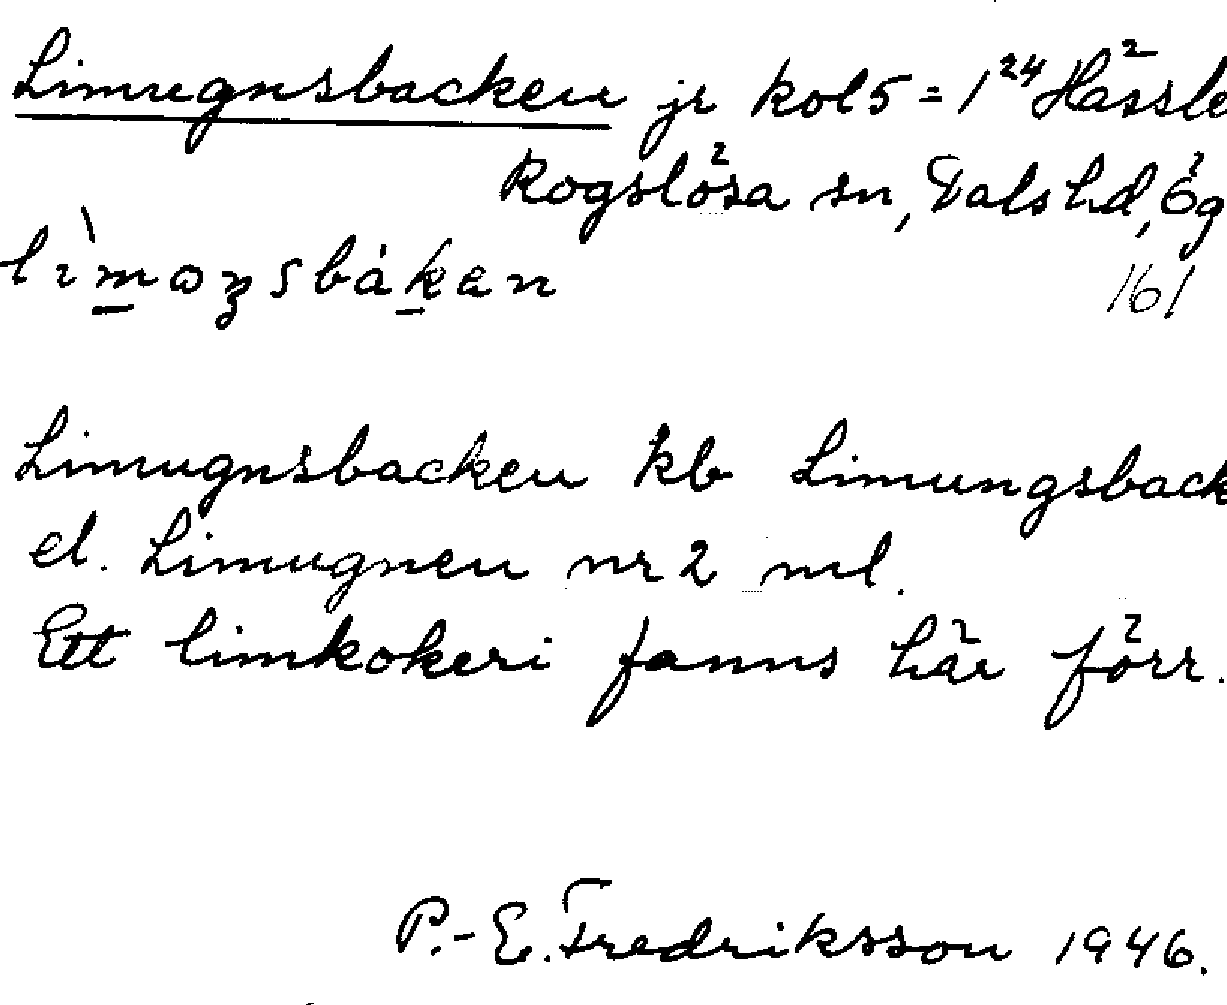 Limugnsbacken jr kol5 = 1²⁴ Hässle
Rogslösa sn, Dals hd, Ög
161
Limugnsbacken kb Limungsback
el. Limugnen nr 2 ml.
Ett limkokeri fanns här förr.
P.-E. Fredriksson 1946.